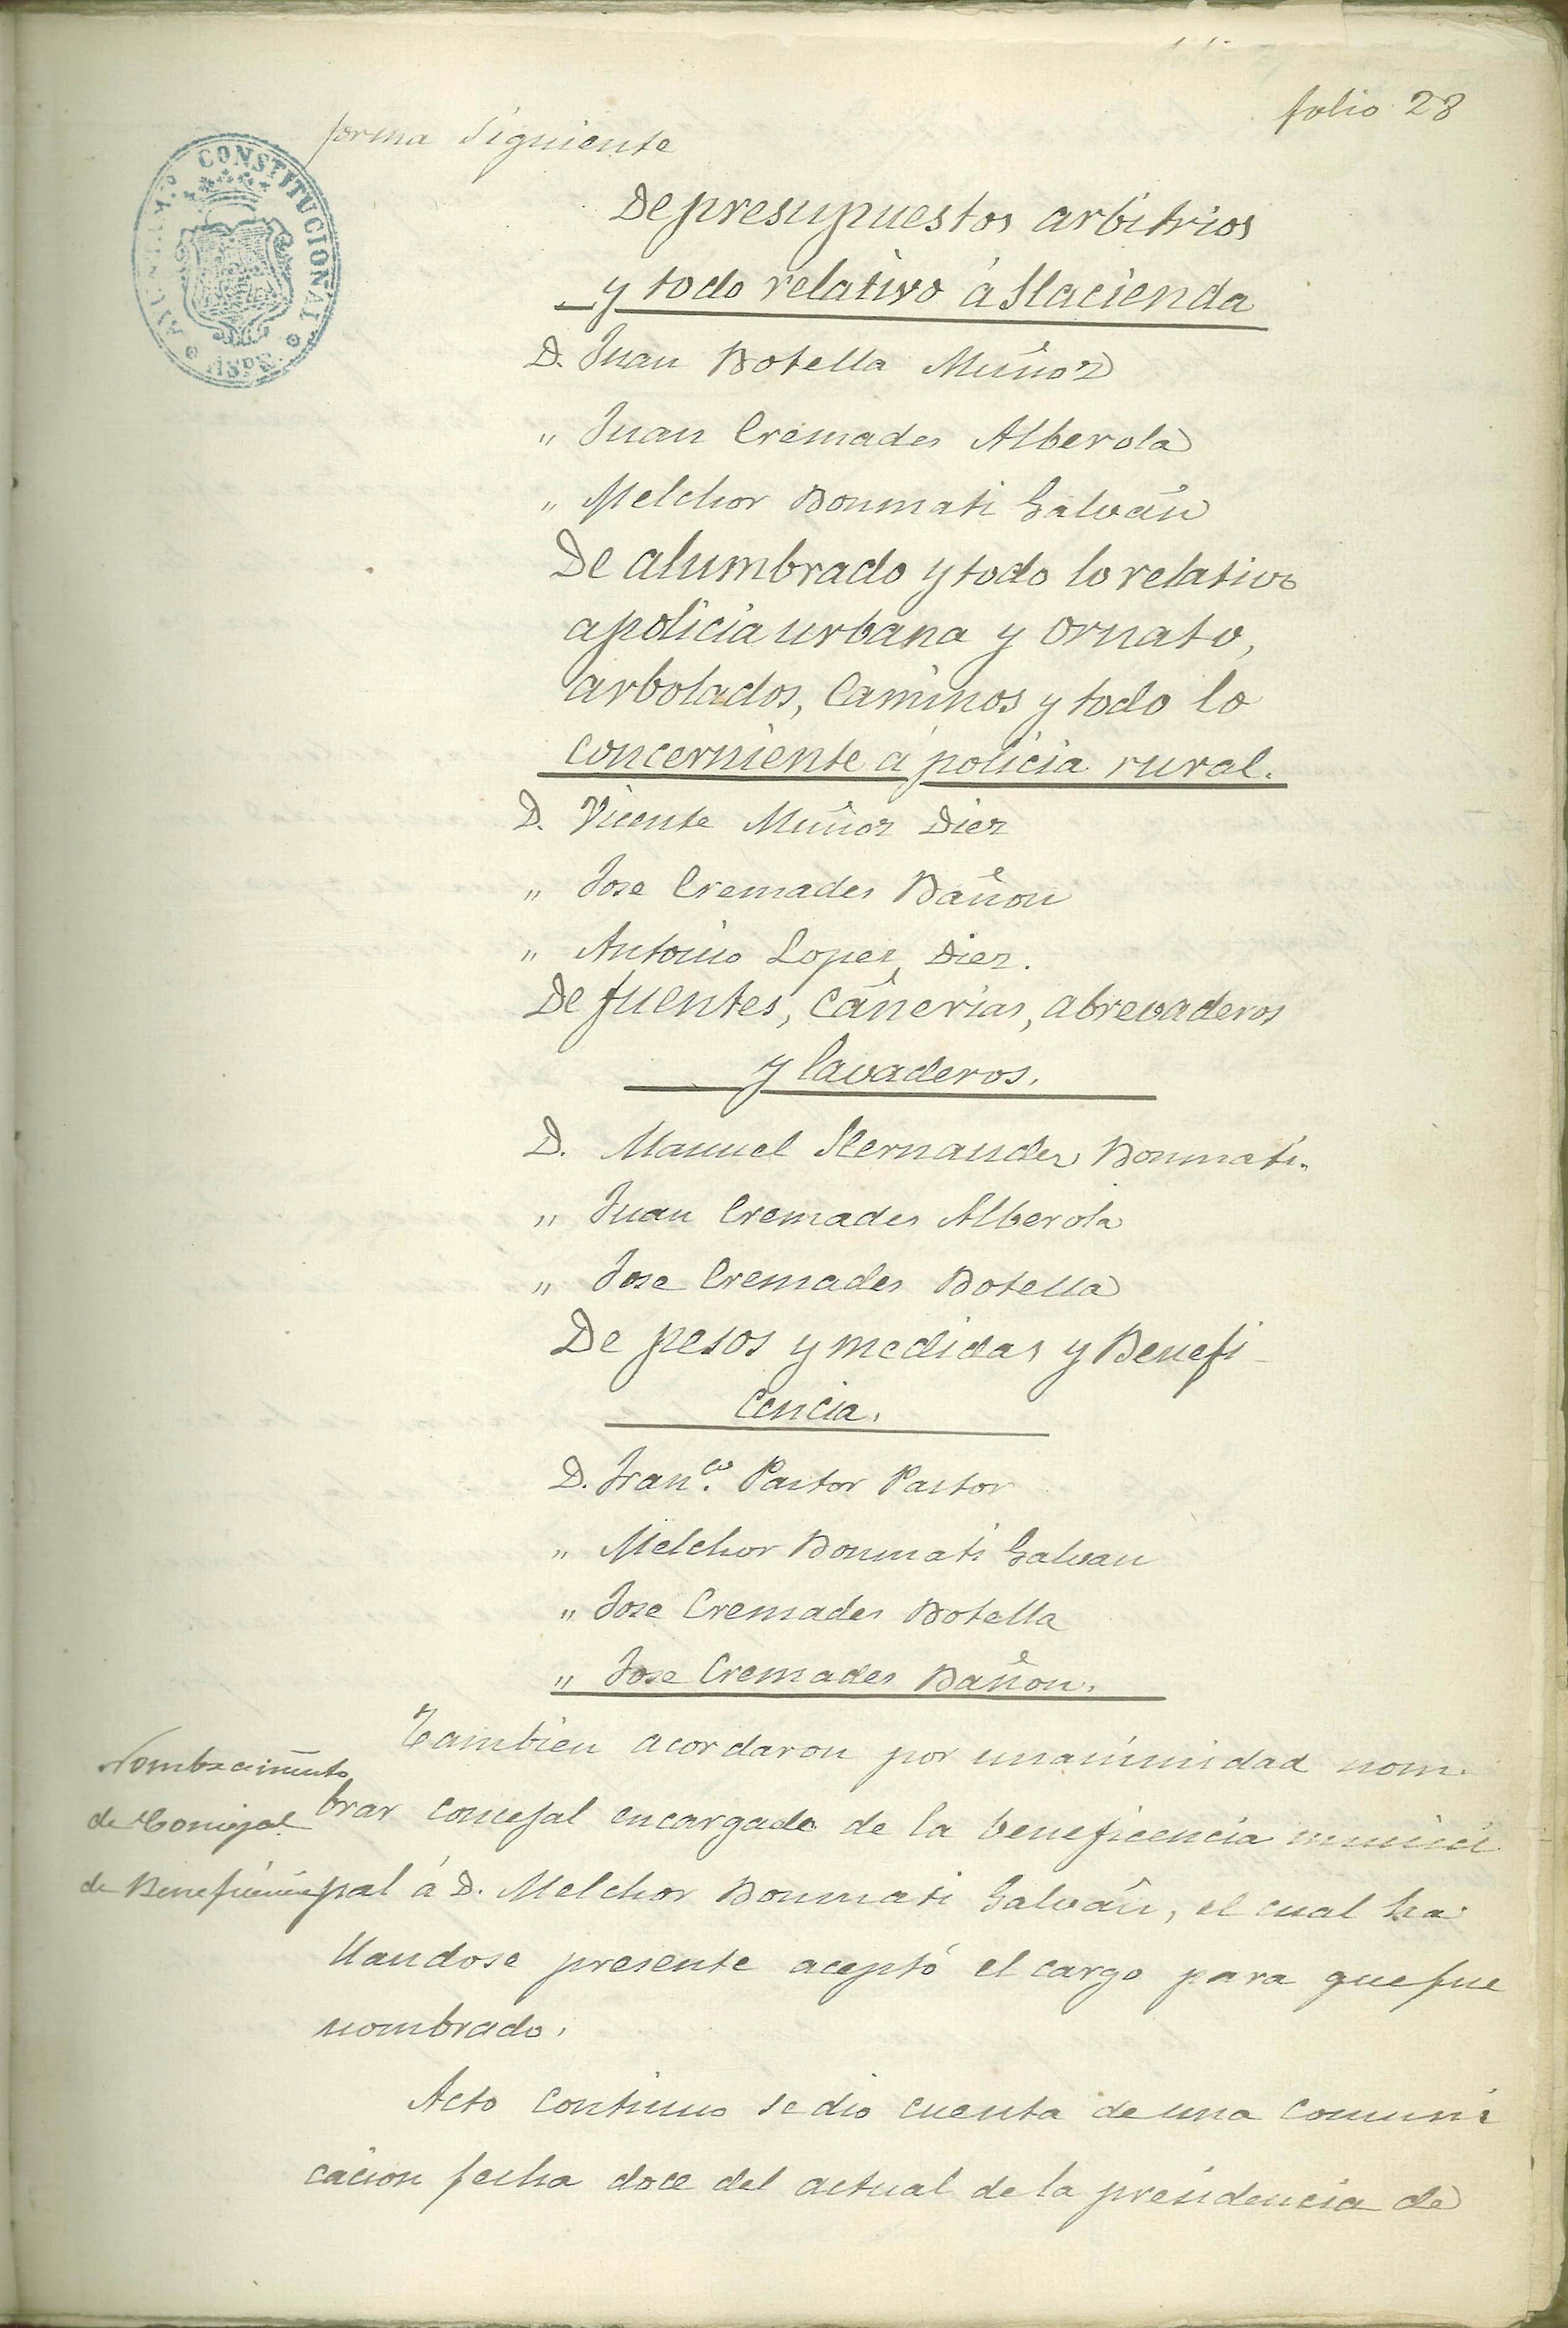 folio 28
forma siguiente
AYUNTAM.º CONSTITUCIONAL
ASPE
De presupuestos arbitrios
y todo relativo á Hacienda
D. Juan Botella Muñoz
" Juan Cremades Alberola
" Melchor Bonmati Galván
De alumbrado y todo lo relativo
a policia urbana y ornato,
arbolados, Caminos y todo lo
concerniente á policia rural.
D. Vicente Muñoz Diez
" Jose Cremades Bañon
" Antonio Lopez Diez.
De fuentes, Cañerias, abrevaderos
y lavaderos.
D. Manuel Hernandez Bonmati.
" Juan Cremades Alberola
" Jose Cremades Botella
De pesos y medidas y Benefi-
cencia.
D. Fran.co Pastor Pastor
" Melchor Bonmati Galvan
" Jose Cremades Botella
" Jose Cremades Bañon.
Tambien acordaron por unanimidad nom-
brar concejal encargado de la beneficencia munici
pal á D. Melchor Bonmati Galván, el cual ha
llandose presente aceptó el cargo para que fue
nombrado.
Nombramiento
de Concejal
de Beneficencia
Acto continuo se dio cuenta de una comuni
cacion fecha doce del actual de la presidencia de